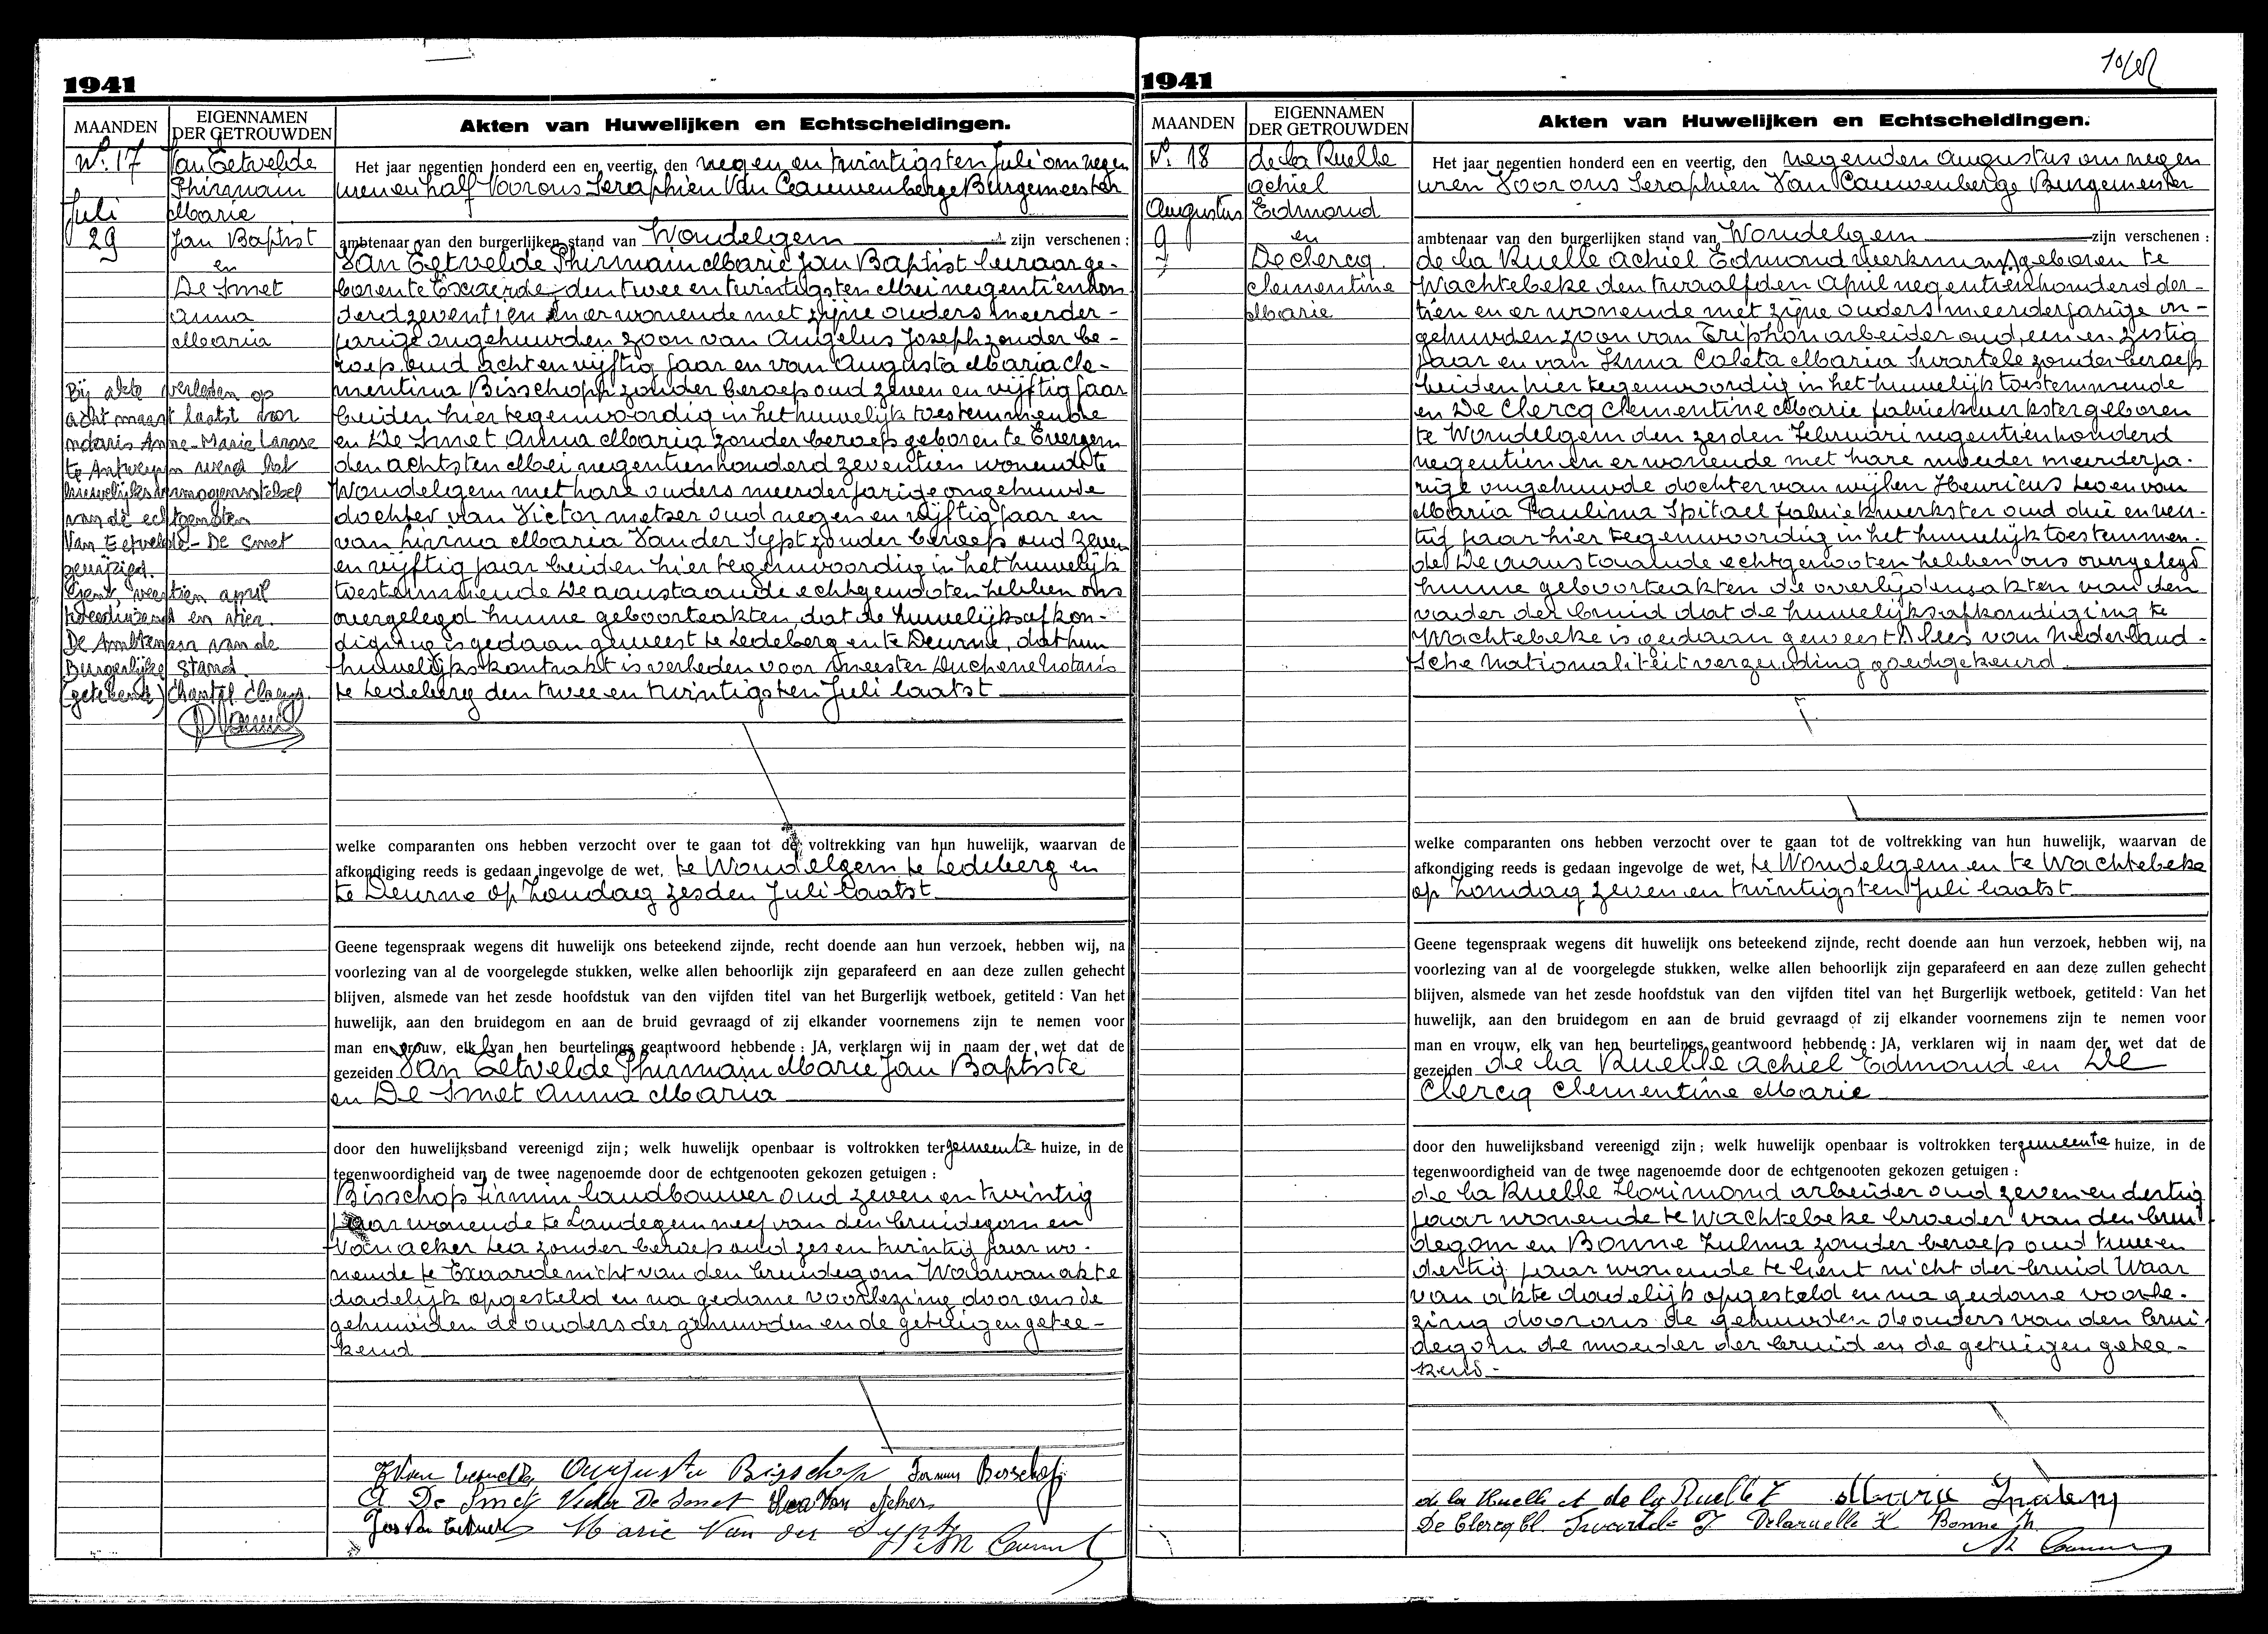 1941
MAANDEN
EIGENNAMEN
DER GETROUWDEN
Akten van Huwelijken en Echtscheidingen.
No. 17
Juli
29
Van Eetvelde
Phirmain
Marie
Jan Baptist
en
De Smet
Anna
Maria
Bij akte verleden op
acht maart laatst door
notaris Anne-Marie
te Antwerpen werd het
huwelijksvermogensstelsel
van de echtgenoten
Van Eetvelde - De Smet
gewijzigd.
Gent, veertien april
tweeduizend en vier.
De Ambtenaar van de
Burgerlijke Stand.
(getekend) Chantal Claeys.
Het jaar negentien honderd een en veertig, den negen en twintigsten Juli om negen
uren en half Voor ons Seraphien Van Cauwenberge Burgemeester
ambtenaar van den burgerlijken stand van Wondelgem zijn verschenen :
Van Eetvelde Phirmain Marie Jan Baptist leraar ge-
boren te Exaarde den twee en twintigsten Mei negentienhon
derdzeventien en er wonende met zijne ouders meerder-
jarige ongehuwden zoon van Angelus Joseph zonder be-
roep oud acht en vijftig jaar en van Augusta Maria Cle-
mentina Bisschop zonder beroep oud zeven en vijftig jaar
beiden hier tegenwoordig in het huwelijk toestemmende
en De Smet Anna Maria zonder beroep geboren te Evergem
den achtsten Mei negentienhonderd zeventien wonende te
Wondelgem met hare ouders meerderjarige ongehuwde
dochter van Victor metser oud negen en vijftig jaar en
van Maria Van der Sypt zonder beroep oud zeven
en vijftig jaar beiden hier tegenwoordig in het huwelijk
toestemmende De aanstaande echtgenoten hebben ons
overgelegd hunne geboorteakten, dat de huwelijksafkon-
diging is gedaan geweest te Ledeberg en te Deurne, dat hun
huwelijkskontrakt is verleden voor Meester Duchene Notaris
te Ledeberg den twee en twintigsten Juli laatst
welke comparanten ons hebben verzocht over te gaan tot de voltrekking van hun huwelijk, waarvan de
afkondiging reeds is gedaan ingevolge de wet, te Wondelgem te Ledeberg en
te Deurne op Zondag zesden Juli laatst
Geene tegenspraak wegens dit huwelijk ons beteekend zijnde, recht doende aan hun verzoek, hebben wij, na
voorlezing van al de voorgelegde stukken, welke allen behoorlijk zijn geparafeerd en aan deze zullen gehecht
blijven, alsmede van het zesde hoofdstuk van den vijfden titel van het Burgerlijk wetboek, getiteld : Van het
huwelijk, aan den bruidegom en aan de bruid gevraagd of zij elkander voornemens zijn te nemen voor
man en vrouw, elk van hen beurtelings geantwoord hebbende : JA, verklaren wij in naam der wet dat de
gezeiden Van Eetvelde Phirmain Marie Jan Baptiste
en De Smet Anna Maria
door den huwelijksband vereenigd zijn ; welk huwelijk openbaar is voltrokken ter gemeente huize, in de
tegenwoordigheid van de twee nagenoemde door de echtgenooten gekozen getuigen :
Bisschop Firmin landbouwer oud zeven en twintig
jaar wonende te Landegem neef van den bruidegom en
Van acker Lea zonder beroep oud zes en twintig jaar wo-
nende te Exaarde nicht van den bruidegom Waarvan akte
dadelijk opgesteld en na gedane voorlezing door ons de
gehuwden de ouders der gehuwden en de getuigen getee-
kend
Augusta Bisschop Firmin Bisschop
A De Smet Victor De Smet Lea Van Acker
Jos Van Eetvelde Marie Van der Sypt
1941
MAANDEN
EIGENNAMEN
DER GETROUWDEN
Akten van Huwelijken en Echtscheidingen.
No. 18
Augustus
9
de la Ruelle
achiel
Edmond
en
De clercq
Clementine
Marie
Het jaar negentien honderd een en veertig, den negenden Augustus om negen
uren Voor ons Seraphien Van Cauwenberge Burgemeester
ambtenaar van den burgerlijken stand van Wondelgem zijn verschenen :
de la Ruelle achiel Edmond werkman geboren te
Wachtebeke den twaalfden April negentienhonderd der-
tien en er wonende met zijne ouders meerderjarige on-
gehuwden zoon van Triphon arbeider oud een en zestig
jaar en van Coleta Maria Swartele zonder beroep
beiden hier tegenwoordig in het huwelijk toestemmende
en De Clercq Clementine Marie fabriekwerkster geboren
te Wondelgem den zesden Februari negentienhonderd
negentien en er wonende met hare moeder meerderja-
rige ongehuwde dochter van wijlen Henricus Leo en van
Maria Paulina Spitael fabriekwerkster oud drie en veer-
tig jaar hier tegenwoordig in het huwelijk toestemmen-
de De aanstaande echtgenooten hebben ons overgelegd
hunne geboorteakten de overlijdensakten van den
vader der bruid dat de huwelijksafkondiging te
Wachtebeke is gedaan geweest A lees van Nederland-
sche nationaliteit verzending goedgekeurd
welke comparanten ons hebben verzocht over te gaan tot de voltrekking van hun huwelijk, waarvan de
afkondiging reeds is gedaan ingevolge de wet, te Wondelgem en te Wachtebeke
op Zondag zeven en twintigsten Juli laatst
Geene tegenspraak wegens dit huwelijk ons beteekend zijnde, recht doende aan hun verzoek, hebben wij, na
voorlezing van al de voorgelegde stukken, welke allen behoorlijk zijn geparafeerd en aan deze zullen gehecht
blijven, alsmede van het zesde hoofdstuk van den vijfden titel van het Burgerlijk wetboek, getiteld : Van het
huwelijk, aan den bruidegom en aan de bruid gevraagd of zij elkander voornemens zijn te nemen voor
man en vrouw, elk van hen beurtelings geantwoord hebbende : JA, verklaren wij in naam der wet dat de
gezeiden de la Ruelle achiel Edmond en De
Clercq Clementine Marie
door den huwelijksband vereenigd zijn ; welk huwelijk openbaar is voltrokken ter gemeente huize, in de
tegenwoordigheid van de twee nagenoemde door de echtgenooten gekozen getuigen :
de la Ruelle Florimond arbeider oud zeven en dertig
jaar wonende te Wachtebeke broeder van den brui
degom en Bonne Zulma zonder beroep oud twee en
dertig jaar wonende te Gent nicht der bruid Waar
van akte dadelijk opgesteld en na gedane voorle-
zing door ons de gehuwden de ouders van den brui
degom de moeder der bruid en de getuigen getee-
kend -
de la Ruelle A de la Ruelle F
De Clercq Cl. Delaruelle Bonne